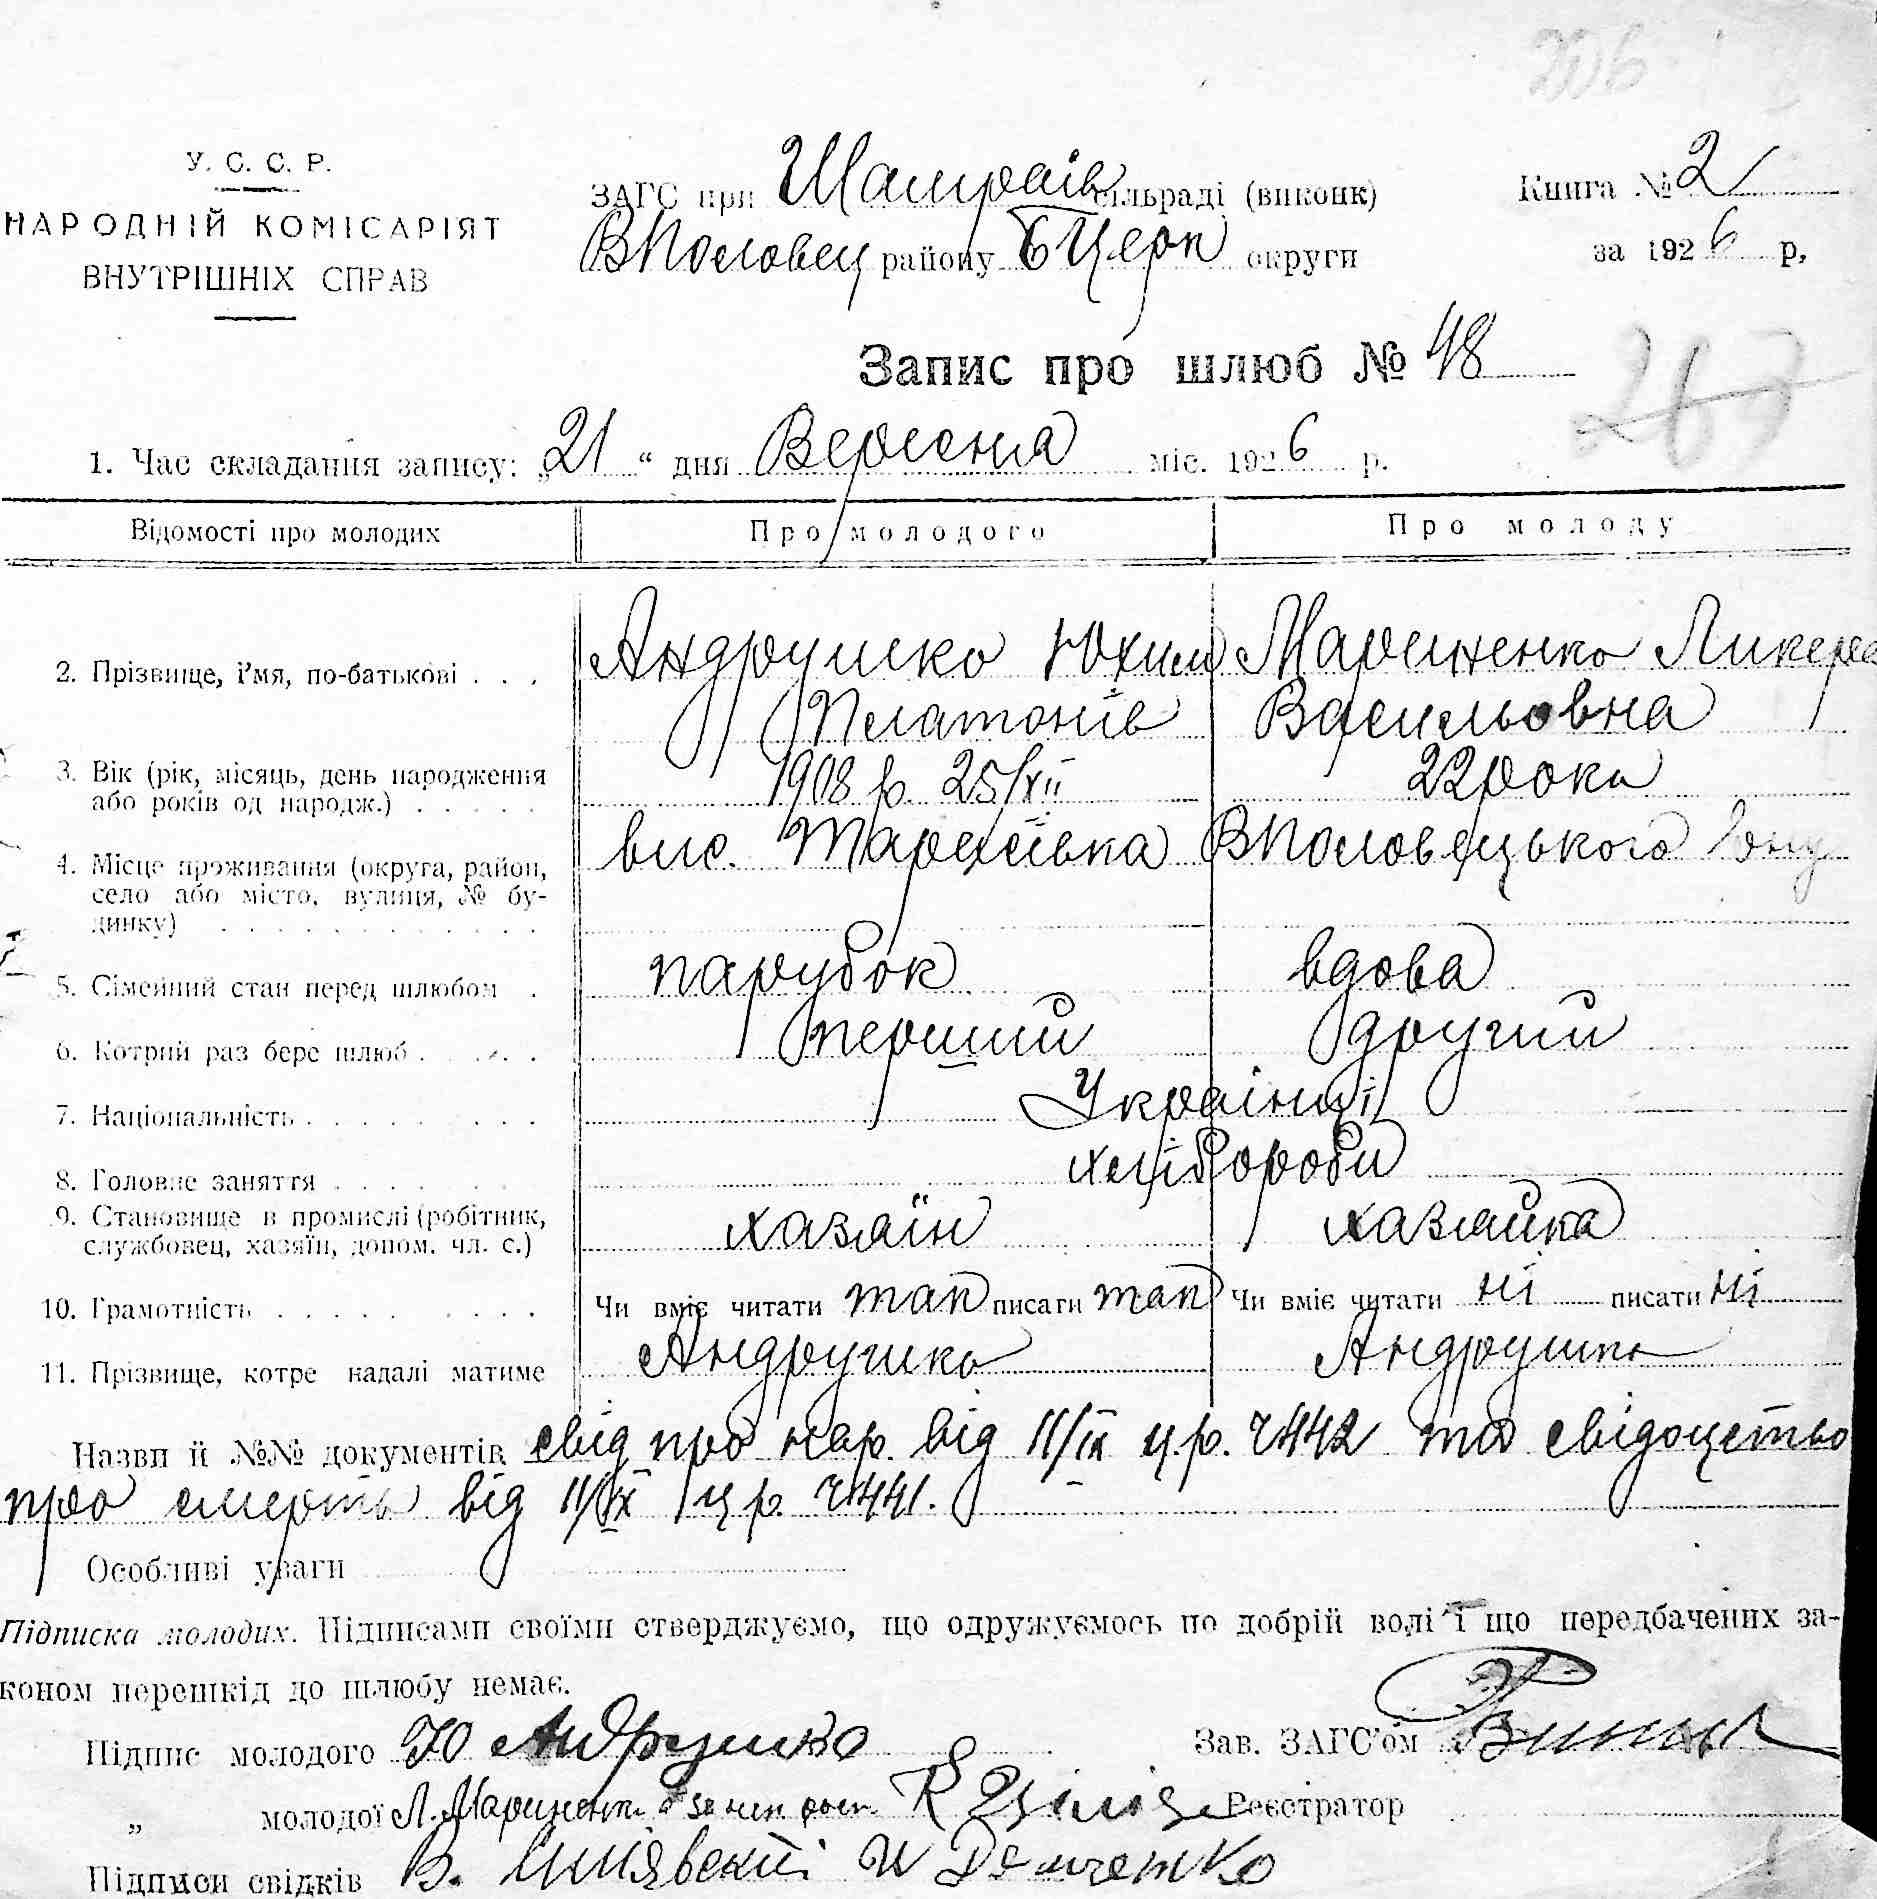 206
У. С. С. Р.
НАРОДНІЙ КОМІСАРІЯТ
ВНУТРІШНІХ СПРАВ
ЗАГС при Шамраїв сільраді (виконк)
ВПоловец району БЦерк округи
Книга № 2
за 1926 р,
Запис про шлюб № 48
267
1. Час складання запису: „21“ дня Вересня міс. 1926 р.
Відомості про молодих Про молодого Про молоду
2. Прізвище, і'мя, по-батькові . . . Андрушко Юхим Марищенко Ликера
Платонів Васильовна
3. Вік (рік, місяць, день народження
або років од народж.) . . . . . 1908 р. 25/XII 22 роки
4. Місце проживання (округа, район,
село або місто, вулиця, № бу-
динку) вис. ВПоловецького
5. Сімейний стан перед шлюбом . парубок вдова
6. Котрий раз бере шлюб . . . . . перший другий
7. Національність . . . . . . . . Українці
8. Головне заняття . . . . . . хлібороби
9. Становище в промислі (робітник,
службовец, хазяїн, допом. чл. с.) хазяїн хазяйка
10. Грамотність . . . . . . . . . Чи вміє читати так писати так Чи вміє читати ні писати ні
11. Прізвище, котре надалі матиме Андрушко Андрушко
Назви й №№ документів свід про нар. від 11/IX ц.р. ч 442 та свідоцтво
про смерть від 11/IX ц.р. ч 441.
Особливі уваги
Підписка молодих. Підписами своїми стверджуємо, що одружуємось по добрій волі і що передбачених за-
коном перешкід до шлюбу немає.
Підпис молодого Ю Андрушко Зав. ЗАГС'ом
„ молодої Л. Марищенко Реєстратор
Підписи свідків В. И Демченко